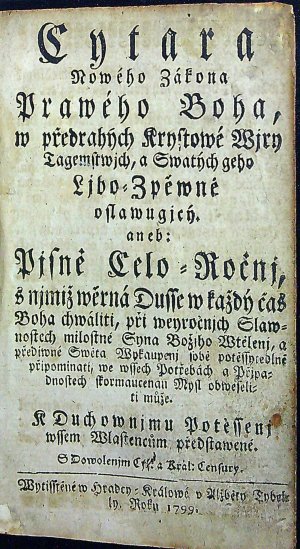 Cytara
Nowého Zákona
Prawého Boha,
w předrahých Krystowé Wjry
Tagemstwjch, a Swatých geho
Ljbo-Zpěwně
oslawugjcý.
aneb:
Pjsně Celo-Ročnj,
s njmiž wěrná Dusse w každý čas
Boha chwáliti, při weyročnjch Slaw-
nostech milostné Syna Božjho Wtělenj, a
předjwné Swěta Wykaupenj sobě potěssytedlně
připominati, we wssech Potřebách a Přjpa-
dnostech skormaucenau Mysl obweseli-
ti může.
K Duchownjmu Potěssenj
wssem Wlastencům představené.
S Dowolenjm Cys. a Král: Censury.
Wytisstěné w Hradcy-Králowé u Alžběty Tybe
ly. Roku 1799.